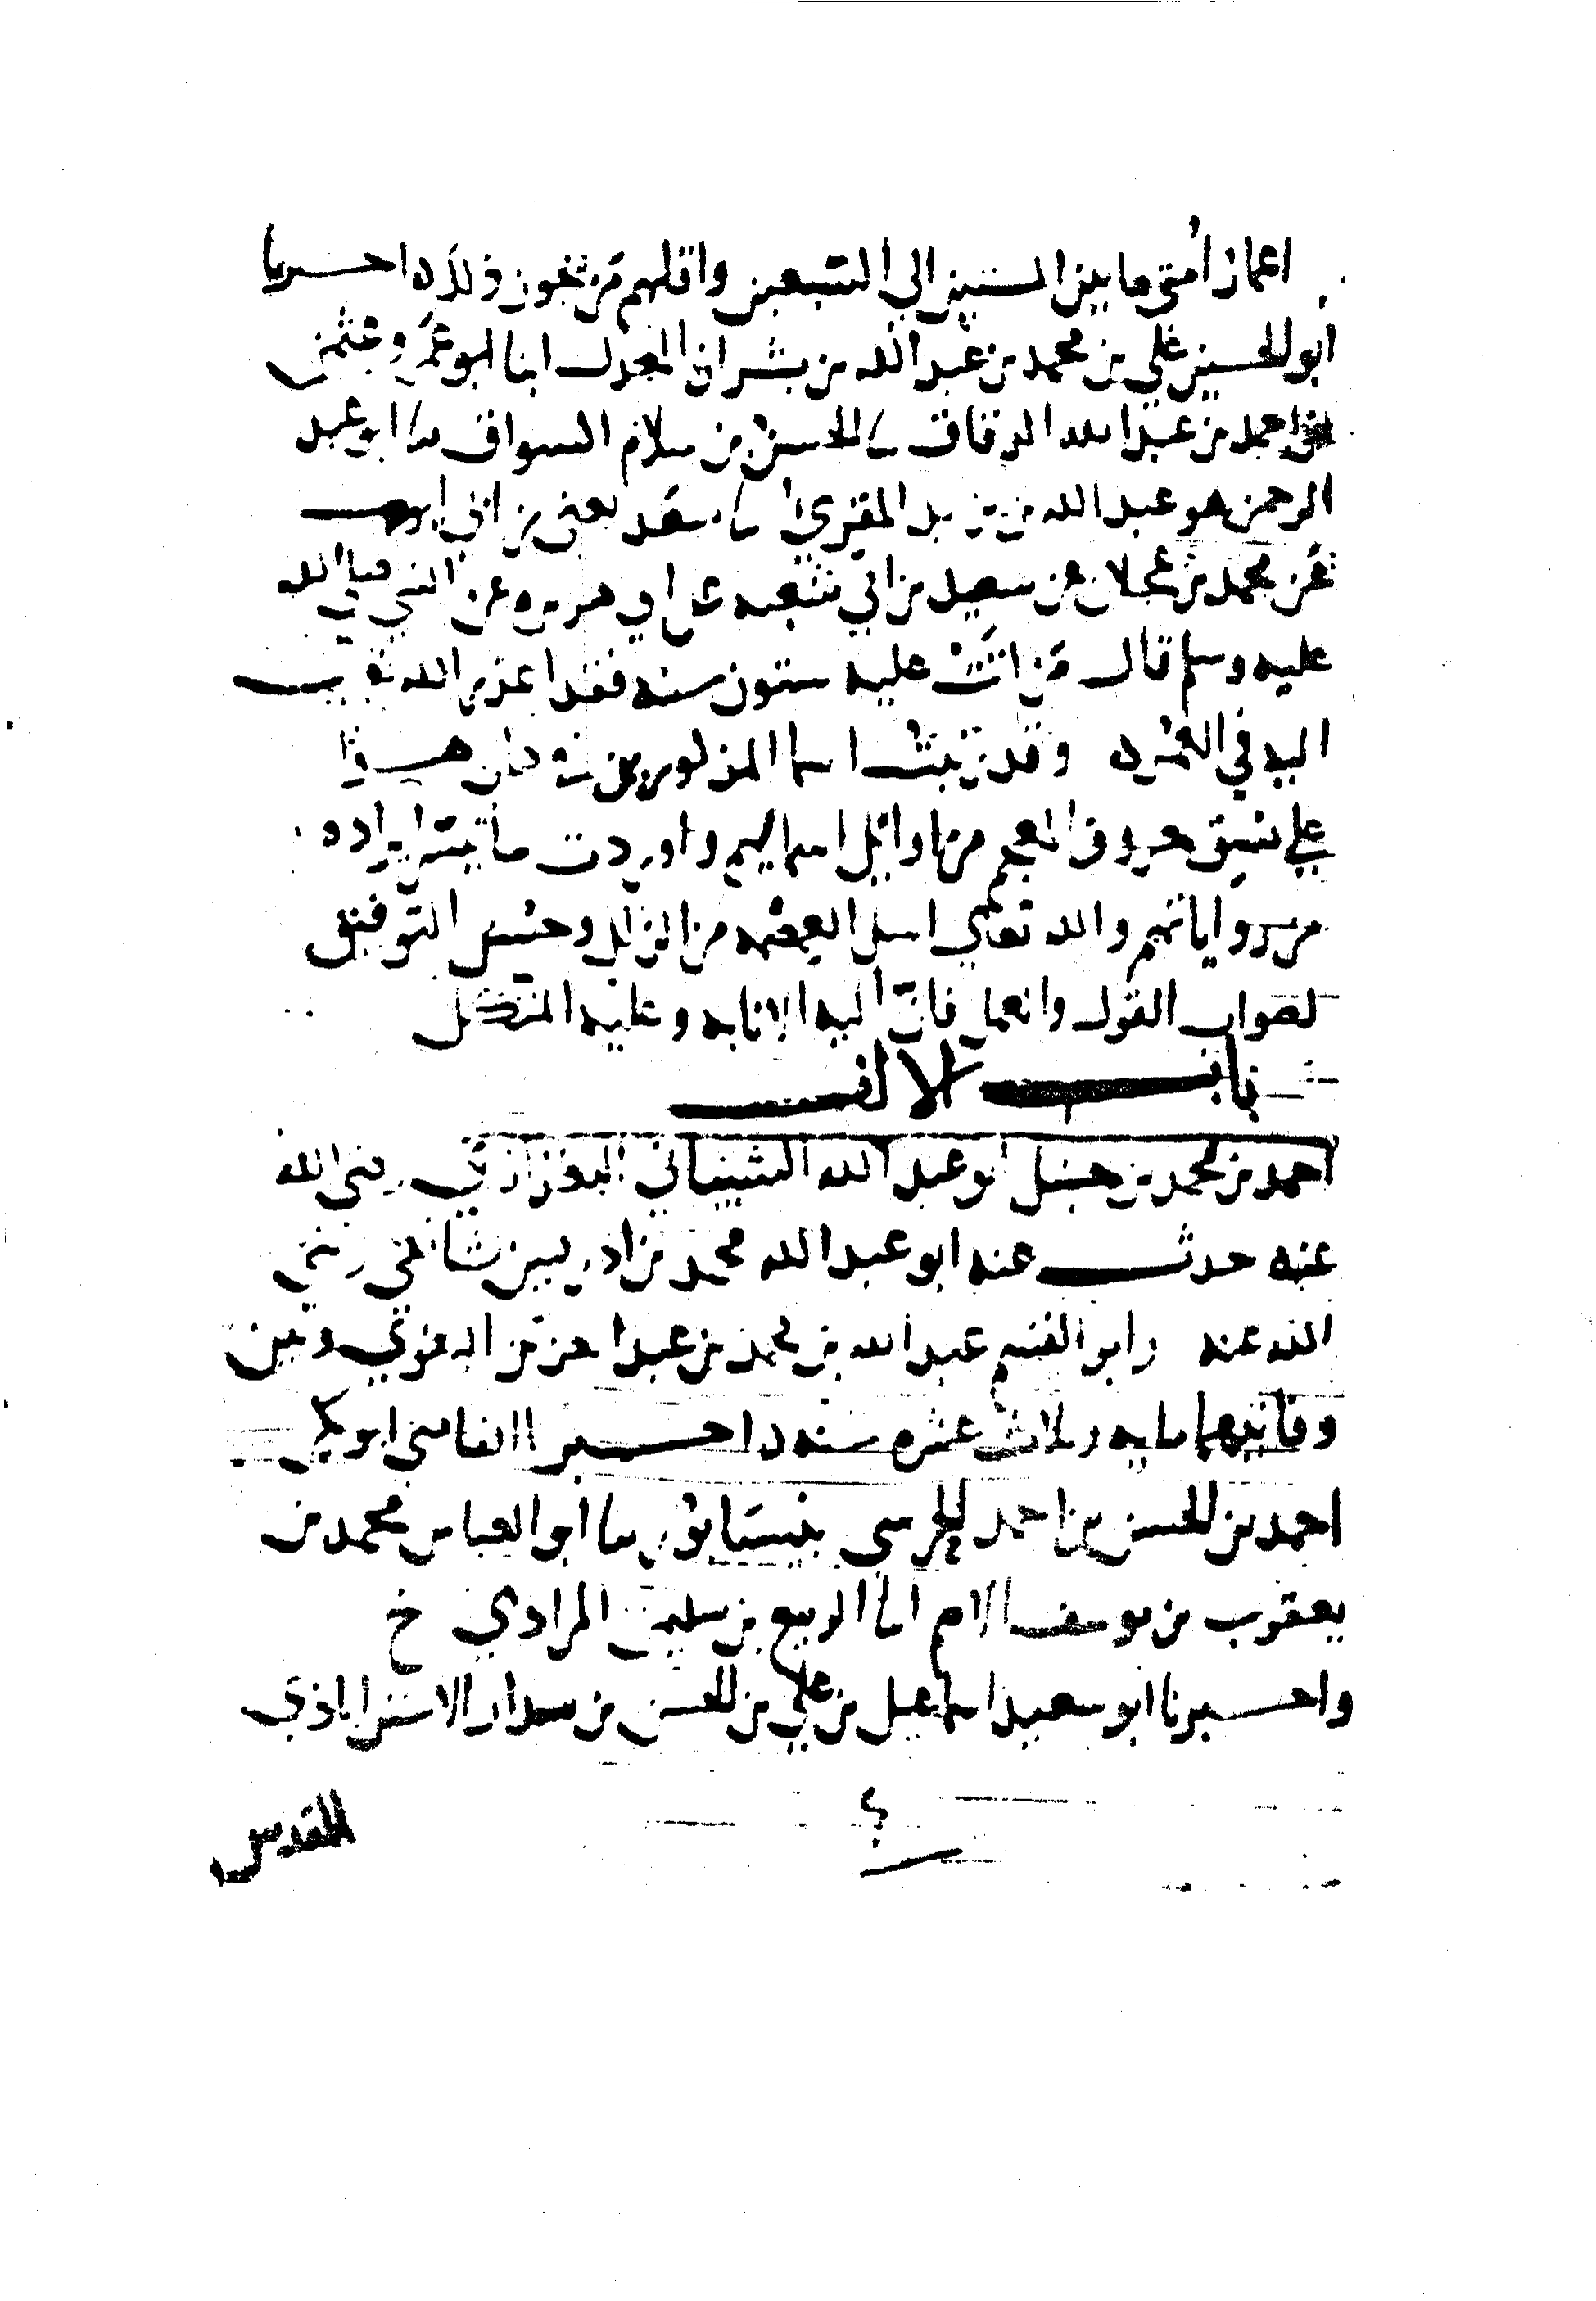 اعمار أمتي ما بين الستين إلي السبعين واقلهم من يجوز ذلك اخبرنا
أبو الحسين علي بن محمد بن عبد الله بن بشران المعدل ابنا ابو عمرو عثمن
بن احمد بن عبد الله الدقاق نا الحسن بن سلام السواق نا ابو عبد
الرحمن هو عبد الله بن يزيد المقري نا سعيد يعني بن ابي ايوب
عن محمد بن عجلان عن سعيد بن ابي سعيد عن ابي هريره عن النبي صلي الله
عليه وسلم قال من اتت عليه ستون سنه فقد اعذر الله
اليه في العمر وقد رتبت اسما المذكورين في
علي نسق حروف المعجم من اوايل اسمايهم واوردت ما ايراده
من رواياتهم والله تعالي اسل العصمه من الزلل وحسن التوفيق
لصواب القول والعمل فان اليه الانابه وعليه المتكل
باب الالف
احمد بن محمد بن حنبل ابو عبد الله الشيباني رضي الله
عنه حدث عنه ابو عبد الله محمد بن ادريس شافعي رضي
الله عنه وابو القسم عبد الله بن محمد بن عبد العزيز البغوي وبين
وفاتيهما مايه وثلاث عشره سنه اخبرنا القاضي ابو بكر
احمد بن الحسن بن احمد الحرسي بنيسابور نا ابو العباس محمد بن
يعقوب بن يوسف الاصم انا الربيع بن سليمن المرادي ح
واخبرنا ابو سعيد اسماعيل بن علي بن الحسن بن بندار الاستراباذي
المقدس